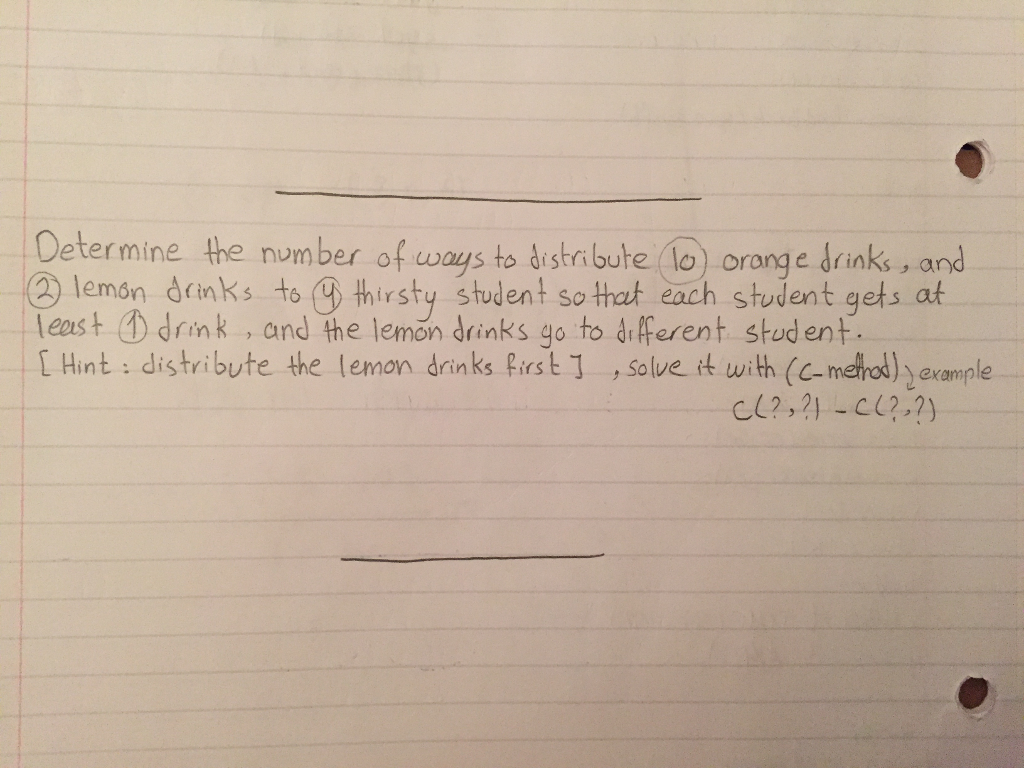 Determine the number of ways to distribute 10 orange drinks, and
2 lemon drinks to 4 thirsty student so that each student gets at
least 1 drink, and the lemon drinks go to different student.
[Hint: distribute the lemon drinks first], solve it with (C-method) example
C(?,?) - C(?,?)